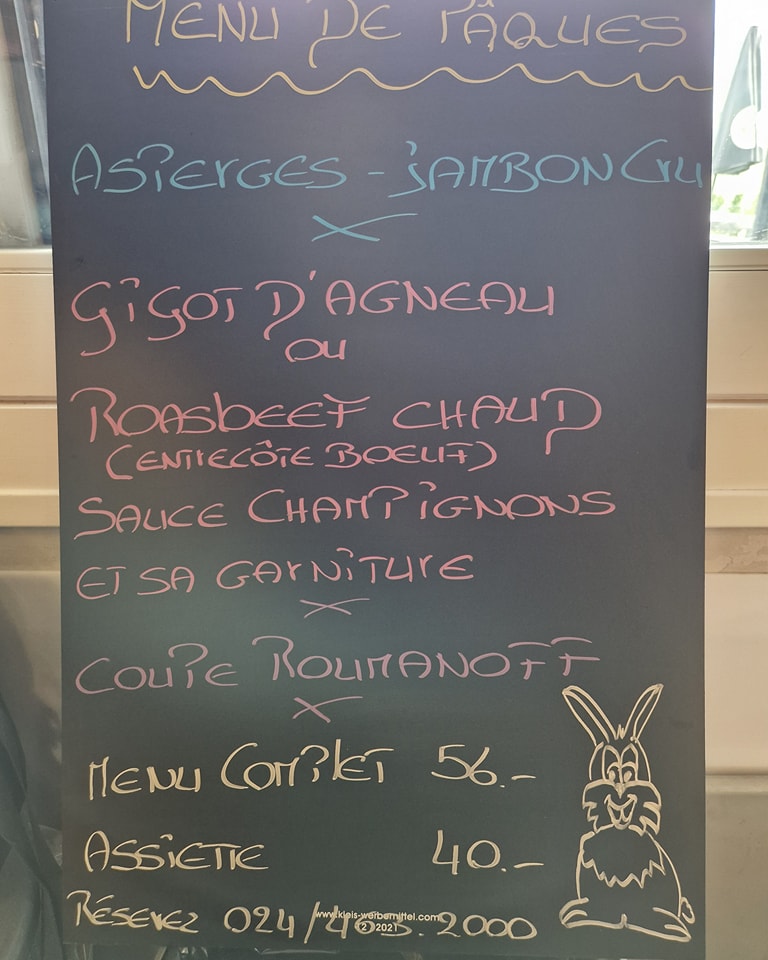 MENU DE PÂQUES
ASPERGES - JAMBON CRU
GIGOT D'AGNEAU
OU
ROASBEEF CHAUD
(ENTRECÔTE BOEUF)
SAUCE CHAMPIGNONS
ET SA GARNITURE
COUPE ROUMANOFF
MENU COMPLET 56.-
ASSIETTE 40.-
RÉSERVEZ 024/403.2000
www.kleis-werbemittel.com
2021